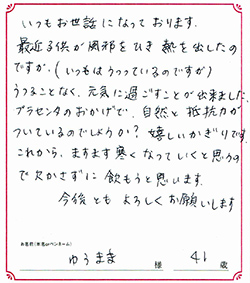 いつもお世話になっております。
最近子供が風邪をひき熱を出したの
ですが、(いつもはうつっているのですが)
うつることなく、元気に過ごすことが出来ました。
プラセンタのおかげで、自然と抵抗力が
ついているのでしょうか?嬉しいかぎりです。
これから、ますます寒くなっていくと思うの
で欠かさずに飲もうと思います。
今後ともよろしくお願いします
お名前(本名orペンネーム)
ゆうまま 様 41 歳